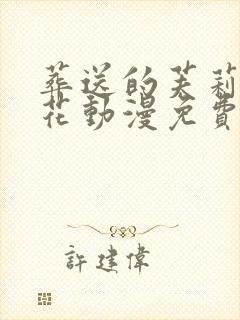 葬送的芙莉
花動漫免費
許建偉